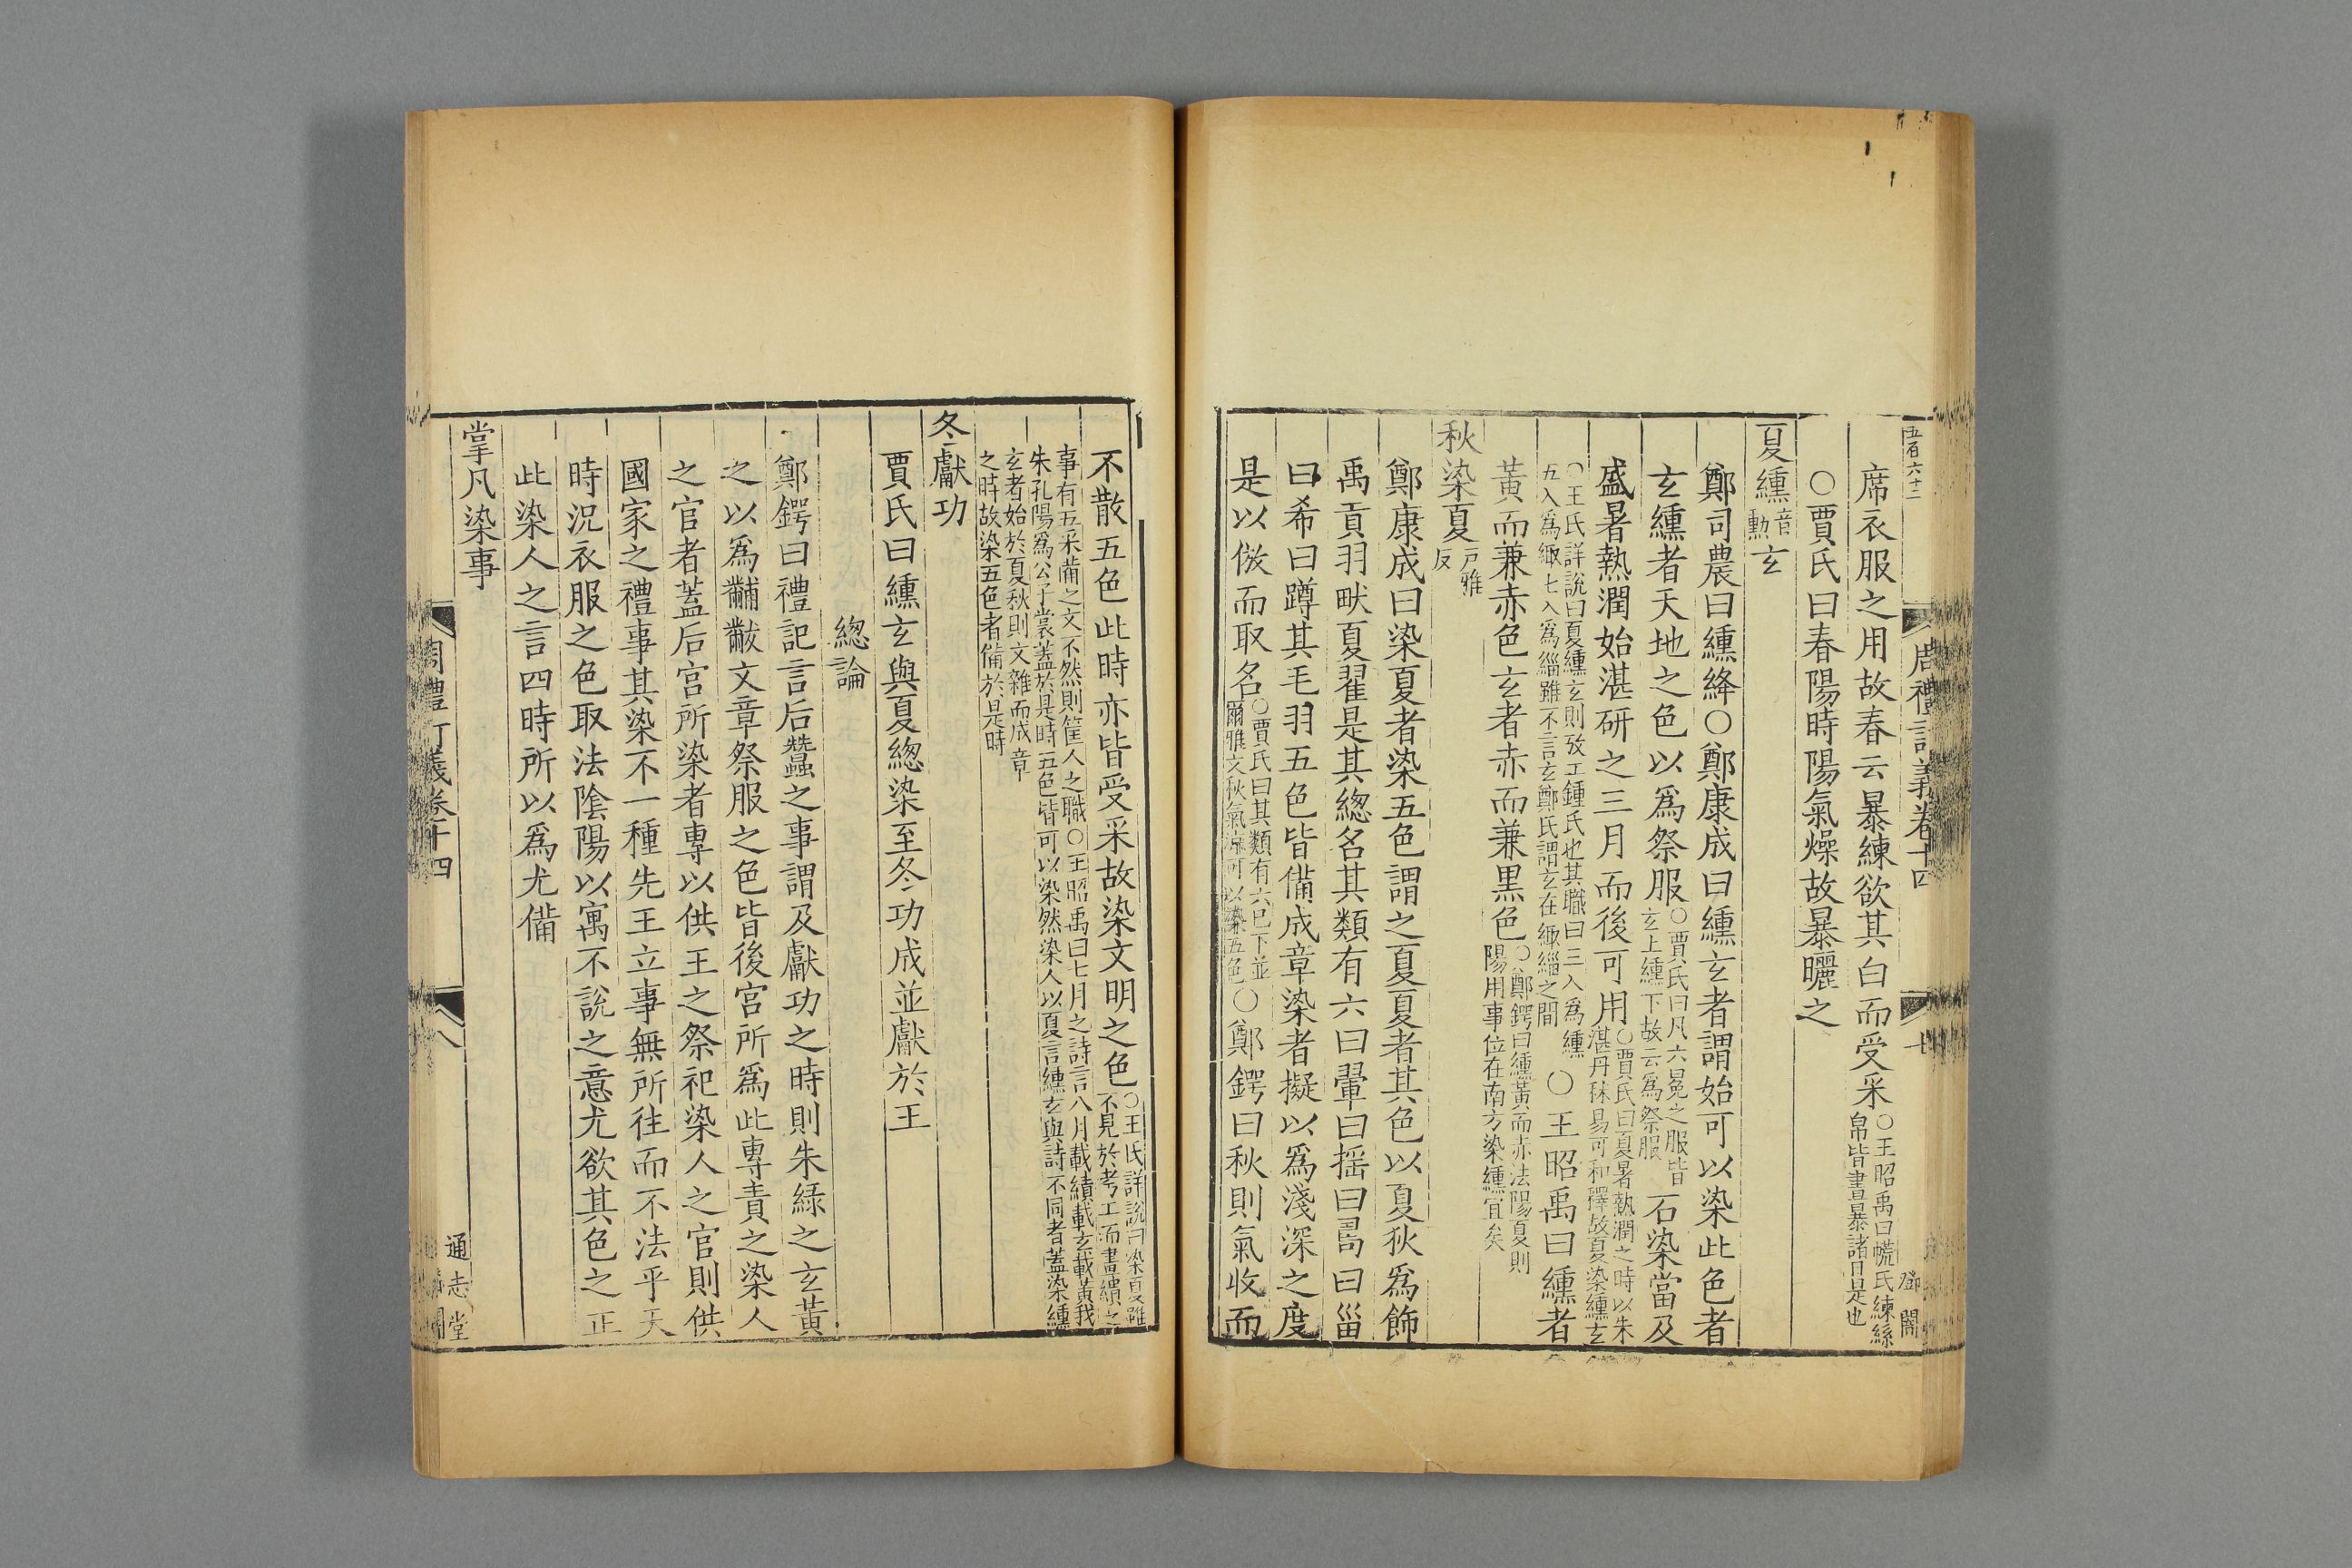 五百六十二
周禮訂義卷十四
七
鄧閣
席衣服之用故春云暴練欲其白而受采○王昭禹曰㡛氏練絲帛皆晝暴諸日是也
○賈氏曰春陽時陽氣燥故暴曬之
夏纁音勳玄
鄭司農曰纁絳○鄭康成曰纁玄者謂始可以染此色者
玄纁者天地之色以爲祭服○賈氏曰凡六冕之服皆玄上纁下故云爲祭服石染當及
盛暑熱潤始湛研之三月而後可用○賈氏曰夏暑熱潤之時以朱湛丹秫易可和釋故夏染纁玄
○王氏詳說曰夏纁玄則攷工鍾氏也其職曰三入爲纁五入爲緅七入爲緇雖不言玄鄭氏謂玄在緅緇之間○王昭禹曰纁者
黃而兼赤色玄者赤而兼黑色○鄭鍔曰纁黃而赤法陽夏則陽用事位在南方染纁宜矣
秋染夏戸雅反
鄭康成曰染夏者染五色謂之夏夏者其色以夏狄爲飾
禹貢羽畎夏翟是其緫名其類有六曰翬曰搖曰𠷎曰甾
曰希曰蹲其毛羽五色皆備成章染者擬以爲淺深之度
是以倣而取名○賈氏曰其類有六已下並爾雅文秋氣涼可以染五色○鄭鍔曰秋則氣收而
不散五色此時亦皆受采故染文明之色○王氏詳說曰染夏雖不見於考工而畫繢之
事有五采備之文不然則筐人之職○王昭禹曰七月之詩言八月載績載玄載黃我朱孔陽爲公子裳蓋於是時五色皆可以染然染人以夏言纁玄與詩不同者蓋染纁
玄者始於夏秋則文雜而成章之時故染五色者備於是時
冬獻功
賈氏曰纁玄與夏緫染至冬功成並獻於王
緫論
鄭鍔曰禮記言后蠶之事謂及獻功之時則朱緑之玄黃
之以爲黼黻文章祭服之色皆後宮所爲此專責之染人
之官者蓋后宮所染者專以供王之祭祀染人之官則供
國家之禮事其染不一種先王立事無所往而不法乎天
時況衣服之色取法陰陽以寓不說之意尤欲其色之正
此染人之言四時所以爲尤備
掌凡染事
周禮訂義卷十四
八
通志堂